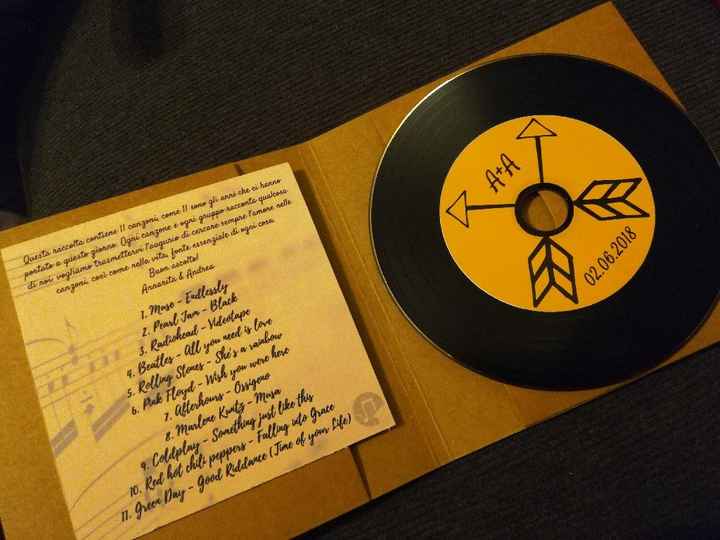 Questa raccolta contiene 11 canzoni, come 11 sono gli anni che ci hanno
portato a questo giorno. Ogni canzone e ogni gruppo racconta qualcosa
di noi: vogliamo trasmettervi l'augurio di cercare sempre l'amore nelle
canzoni, così come nella vita, fonte essenziale di ogni cosa.
Buon ascolto!
Annarita & Andrea
1. Muse - Endlessly
2. Pearl Jam - Black
3. Radiohead - Videotape
4. Beatles - All you need is love
5. Rolling Stones - She's a rainbow
6. Pink Floyd - Wish you were here
7. Afterhours - Ossigeno
8. Marlene Kuntz - Musa
9. Coldplay - Something just like this
10. Red hot chili peppers - Falling into Grace
11. Green Day - Good Riddance (Time of your Life)
A+A
02.06.2018